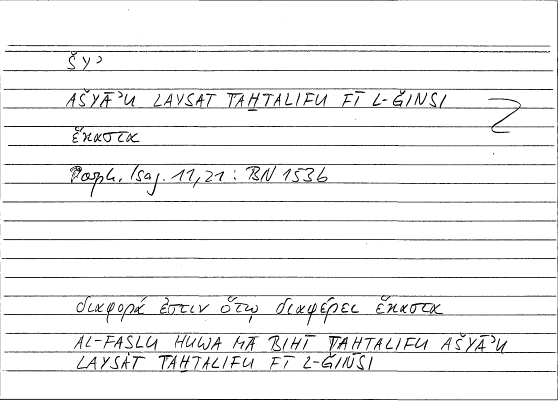 ŠYʾ
AŠYĀʾU LAYSAT TAḪTALIFU FĪ L-ǦINSI
ἕκαστα
Porph. Isag. 11,21 : BN 153b
διαφορά ἐστιν ὅτῳ διαφέρει ἕκαστα
AL-FAṢLU HUWA MĀ BIHĪ TAḪTALIFU AŠYĀʾU
LAYSAT TAḪTALIFU FĪ L-ǦINSI